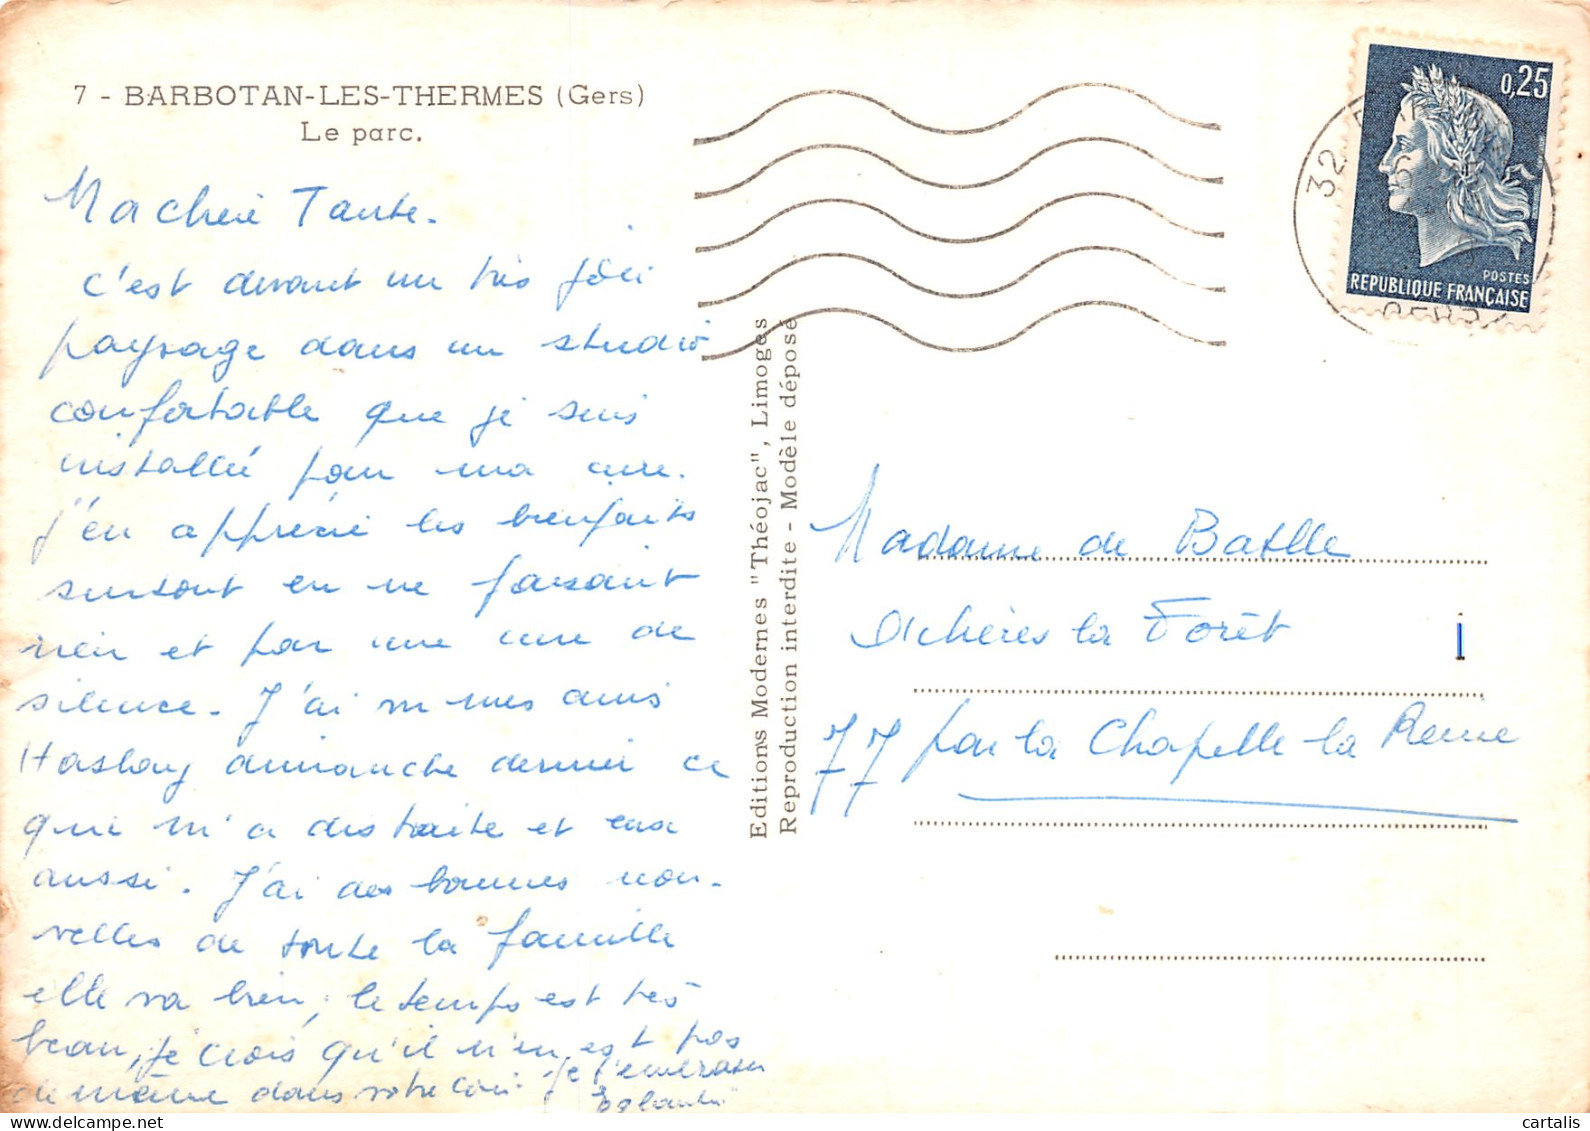 7 - BARBOTAN-LES-THERMES (Gers)
Le parc.
Ma chère Tante.
c'est devant un très joli
paysage dans un studio
confortable que je suis
installée pour ma cure.
J'en apprécie les bienfaits
surtout en ne faisant
rien et par une cure de
silence. J'ai vu mes amis
dimanche dernier ce
qui m'a distraite et eux
aussi. J'ai des bonnes nou-
velles de toute la famille
elle va bien, le temps est très
beau, je crois qu'il n'en est pas
de même dans votre coin. Je t'embrasse
Editions Modernes "Théojac", Limoges
Reproduction interdite - Modèle déposé
0,25
POSTES
REPUBLIQUE FRANÇAISE
32
GERS
Madame de Batlle
Achères la Forêt
77 par la Chapelle la Reine
cartalis